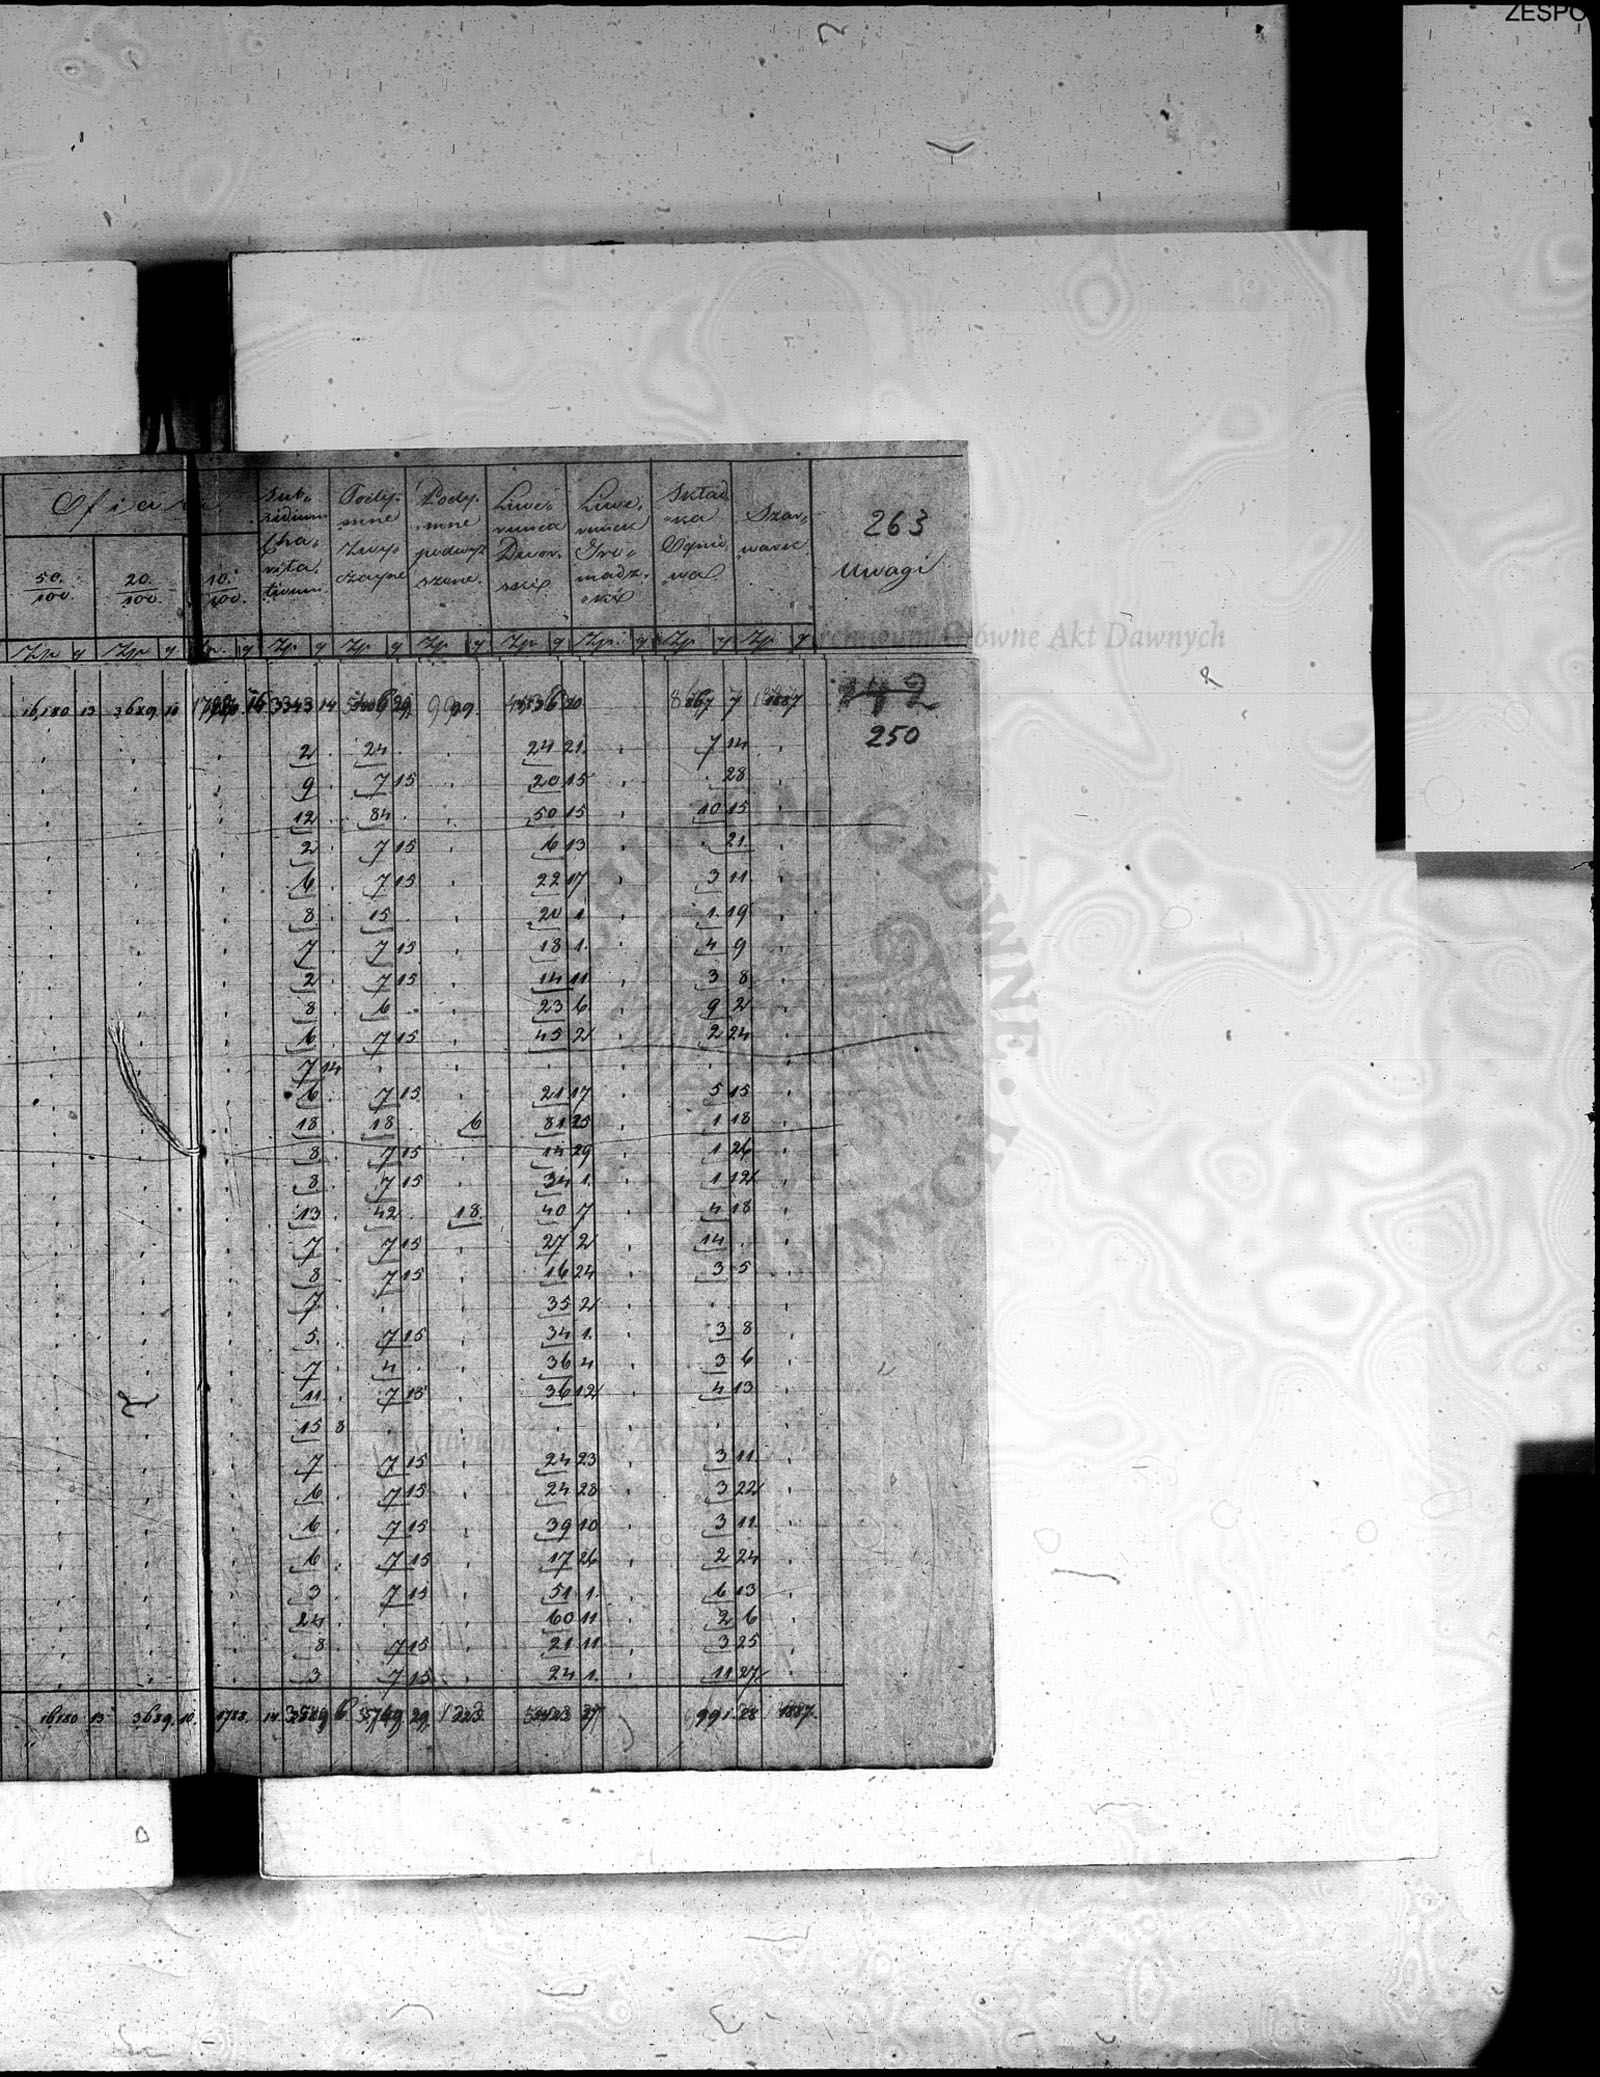 ZESPO
Ofiara
50/100 20/100 10/100
Subsidium Charitativum
Podymne Zwyczayne
Podymne podwyzszone
Liwerunek Dworski
Liwerunek Gromadzki
Składka Ogniowa
Szarwark
263
Uwagi
Zp g Zp g Zp g Zp g Zp g Zp g Zp g Zp g Zp g Zp g
Archiwum Główne Akt Dawnych
16,180 13 3689 10 3343 14 7 1887 142
250
2 24 24 21 7 14
9 7 15 20 15 28
12 84 50 15 10 15
2 7 15 6 13 21
6 7 15 22 17 3 11
8 15 20 1 1 19
7 7 15 18 1 4 9
2 7 15 14 11 3 8
8 6 23 6 9 2
6 7 15 45 2 2 24
7 14
6 7 15 21 17 5 15
18 18 6 81 25 1 18
8 7 15 14 29 1 26
8 7 15 34 1 1 12
13 42 18 40 7 4 18
7 7 15 27 2 14
8 7 15 16 24 3 5
7 35 2
5 7 15 34 1 3 8
7 4 36 4 3 6
11 7 15 36 12 4 13
15 8
7 7 15 24 23 3 11
6 7 15 24 28 3 22
6 7 15 39 10 3 11
6 7 15 17 26 2 24
3 7 15 51 1 6 13
24 60 11 2 6
8 7 15 21 11 3 25
3 7 15 24 1 11 27
16180 13 3689 10 1788 14 29 28 1887